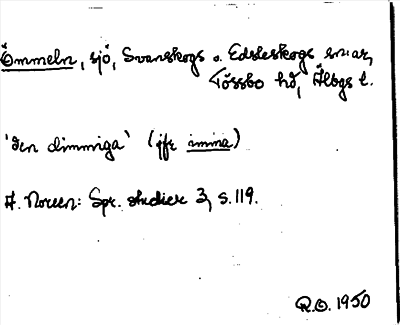 Ömmeln, sjö, Svanskogs o. Edsleskogs snar,
Tössbo hd, Älvbgs l.
'den dimmiga' (jfr imma)
A. Noreen: Spr. studier 3, s. 119.
R.O. 1950